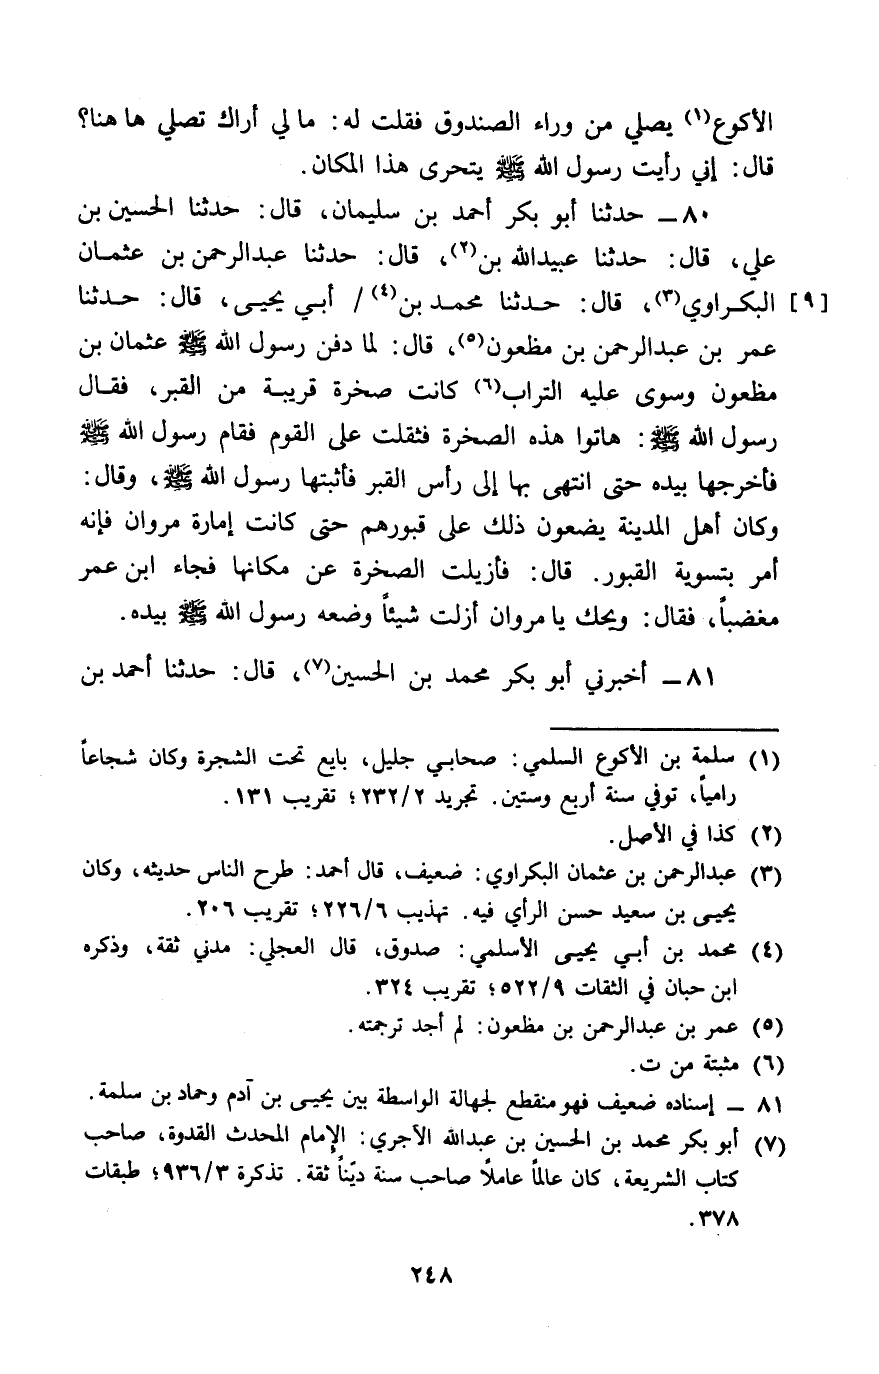 الأكوع(١) يصلي من وراء الصندوق فقلت له: ما لي أراك تصلي ها هنا؟
قال: إني رأيت رسول الله ﷺ يتحرى هذا المكان.
٨٠ ــ حدثنا أبو بكر أحمد بن سليمان، قال: حدثنا الحسين بن
علي، قال: حدثنا عبيدالله بن(٢)، قال: حدثنا عبدالرحمن بن عثمان
[٩] البكراوي(٣)، قال: حدثنا محمد بن(٤) / أبي يحيى، قال: حدثنا
عمر بن عبدالرحمن بن مظعون(٥)، قال: لما دفن رسول الله ﷺ عثمان بن
مظعون وسوى عليه التراب(٦) كانت صخرة قريبة من القبر، فقال
رسول الله ﷺ: هاتوا هذه الصخرة فثقلت على القوم فقام رسول الله ﷺ
فأخرجها بيده حتى انتهى بها إلى رأس القبر فأثبتها رسول الله ﷺ، وقال:
وكان أهل المدينة يضعون ذلك على قبورهم حتى كانت إمارة مروان فإنه
أمر بتسوية القبور. قال: فأزيلت الصخرة عن مكانها فجاء ابن عمر
مغضباً، فقال: ويحك يا مروان أزلت شيئاً وضعه رسول الله ﷺ بيده.
٨١ ــ أخبرني أبو بكر محمد بن الحسين(٧)، قال: حدثنا أحمد بن
(١) سلمة بن الأكوع السلمي: صحابي جليل، بايع تحت الشجرة وكان شجاعاً
رامياً، توفي سنة أربع وستين. تجريد ٢٣٢/٢؛ تقريب ١٣١.
(٢) كذا في الأصل.
(٣) عبدالرحمن بن عثمان البكراوي: ضعيف، قال أحمد: طرح الناس حديثه، وكان
يحيى بن سعيد حسن الرأي فيه. تهذيب ٢٢٦/٦؛ تقريب ٢٠٦.
(٤) محمد بن أبي يحيى الأسلمي: صدوق، قال العجلي: مدني ثقة، وذكره
ابن حبان في الثقات ٥٢٢/٩؛ تقريب ٣٢٤.
(٥) عمر بن عبدالرحمن بن مظعون: لم أجد ترجمته.
(٦) مثبتة من ت.
٨١ ــ إسناده ضعيف فهو منقطع لجهالة الواسطة بين يحيى بن آدم وحماد بن سلمة.
(٧) أبو بكر محمد بن الحسين بن عبدالله الآجري: الإمام المحدث القدوة، صاحب
كتاب الشريعة، كان عالماً عاملاً صاحب سنة ديّناً ثقة. تذكرة ٩٣٦/٣؛ طبقات
٣٧٨.
٢٤٨